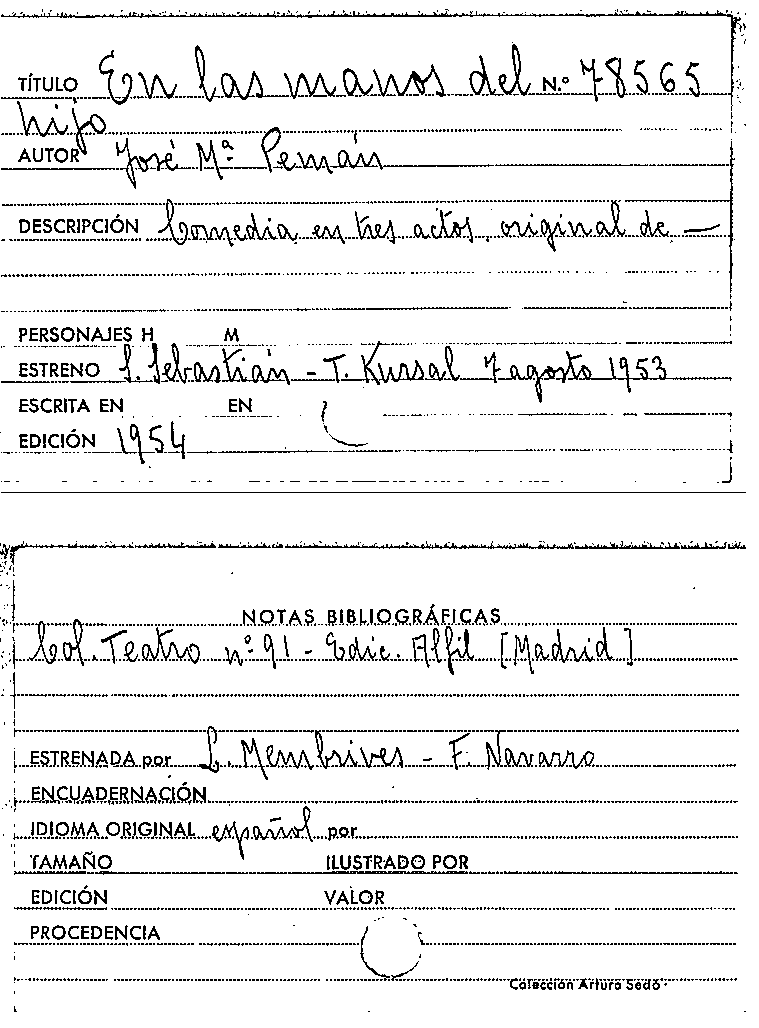 TÍTULO En las manos del N.º 78565
hijo
AUTOR José Mª Pemán
DESCRIPCIÓN Comedia en tres actos, original de —
PERSONAJES H M
ESTRENO S. Sebastián - T. Kursal 7 agosto 1953
ESCRITA EN EN
EDICIÓN 1954
NOTAS BIBLIOGRÁFICAS
Col. Teatro nº 91 - Edic. Alfil [Madrid]
ESTRENADA por L. Membrives - F. Navarro
ENCUADERNACIÓN
IDIOMA ORIGINAL español por
TAMAÑO ILUSTRADO POR
EDICIÓN VALOR
PROCEDENCIA
Colección Arturo Sedó